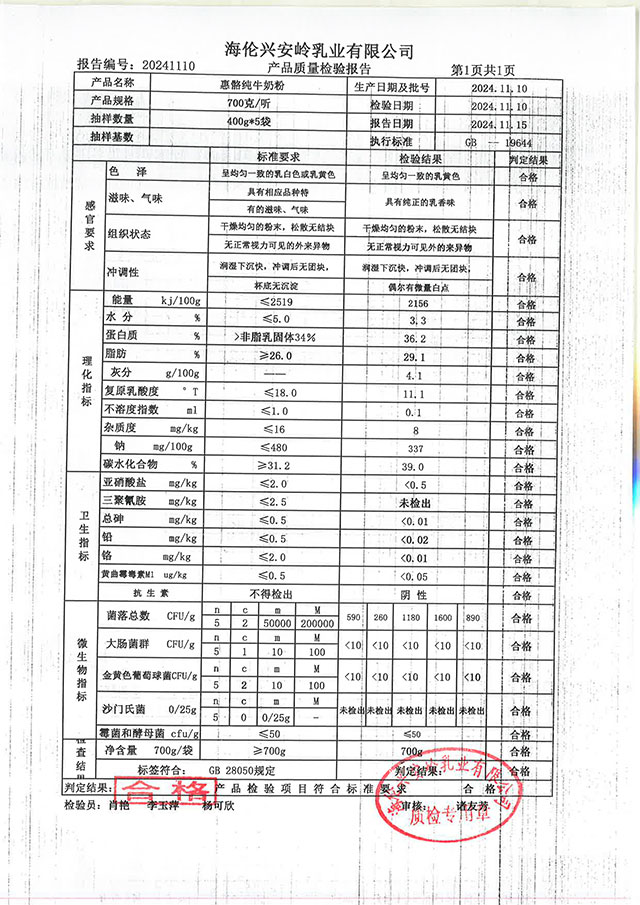 海伦兴安岭乳业有限公司
报告编号：20241110 产品质量检验报告 第1页共1页
产品名称 惠骼纯牛奶粉 生产日期及批号 2024.11.10
产品规格 700克/听 检验日期 2024.11.10
抽样数量 400g*5袋 报告日期 2024.11.15
抽样基数 执行标准 GB — 19644
标准要求 检验结果 判定结果
感官要求
色 泽 呈均匀一致的乳白色或乳黄色 呈均匀一致的乳黄色 合格
滋味、气味 具有相应品种特 具有纯正的乳香味 合格
有的滋味、气味
组织状态 干燥均匀的粉末，松散无结块 干燥均匀的粉末，松散无结块 合格
无正常视力可见的外来异物 无正常视力可见外的来异物
冲调性 润湿下沉快，冲调后无团块， 润湿下沉快，冲调后无团块， 合格
杯底无沉淀 偶尔有微量白点
理化指标
能量 kj/100g ≤2519 2156 合格
水 分 % ≤5.0 3.3 合格
蛋白质 % >非脂乳固体34% 36.2 合格
脂肪 % ≥26.0 29.1 合格
灰分 g/100g —— 4.1 合格
复原乳酸度 °T ≤18.0 11.1 合格
不溶度指数 ml ≤1.0 0.1 合格
杂质度 mg/kg ≤16 8 合格
钠 mg/100g ≤480 337 合格
碳水化合物 % ≥31.2 39.0 合格
卫生指标
亚硝酸盐 mg/kg ≤2.0 <0.5 合格
三聚氰胺 mg/kg ≤2.5 未检出 合格
总砷 mg/kg ≤0.5 <0.01 合格
铅 mg/kg ≤0.5 <0.02 合格
铬 mg/kg ≤2.0 <0.01 合格
黄曲霉毒素M1 ug/kg ≤0.5 <0.05 合格
抗 生 素 不得检出 阴 性 合格
微生物指标
菌落总数 CFU/g n c m M 590 260 1180 1600 890 合格
5 2 50000 200000
大肠菌群 CFU/g n c m M <10 <10 <10 <10 <10 合格
5 1 10 100
金黄色葡萄球菌CFU/g n c m M <10 <10 <10 <10 <10 合格
5 2 10 100
沙门氏菌 0/25g n c m M 未检出 未检出 未检出 未检出 未检出 合格
5 0 0/25g –
霉菌和酵母菌 cfu/g ≤50 ≤50 合格
净含量 700g/袋 ≥700g 700g 合格
标签符合： GB 28050规定 判定结果： 合格
判定结果： 合格 产品检验项目符合标准要求 合 格
检验员：肖艳 李玉萍 杨可欣 审核： 诸友芳
海伦兴安岭乳业有限公司
质检专用章